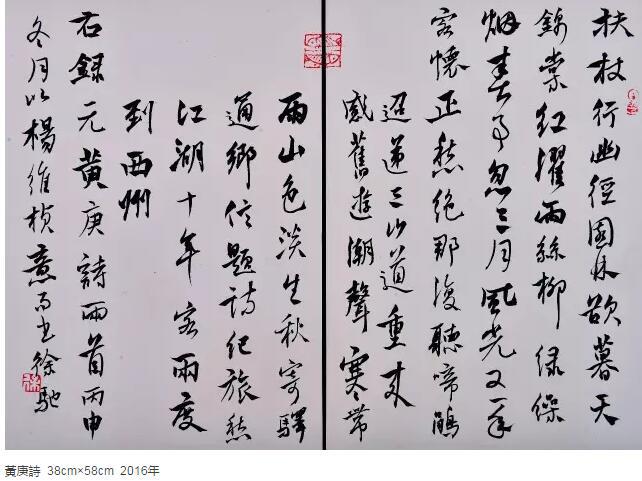 扶杖行幽徑園林欲暮天
錦棠紅濯雨絲柳綠繰
烟春事忽三月風光又一年
客懷正愁絕那復聽啼鵑
迢遞三山道重來
感舊遊潮聲寒帶
雨山色淡生秋寄驛
通鄉信題詩紀旅愁
江湖十年客兩度
到西州
右錄元黃庚詩兩首丙申
冬月以楊維楨意而書徐馳
黃庚詩 38cm×58cm 2016年